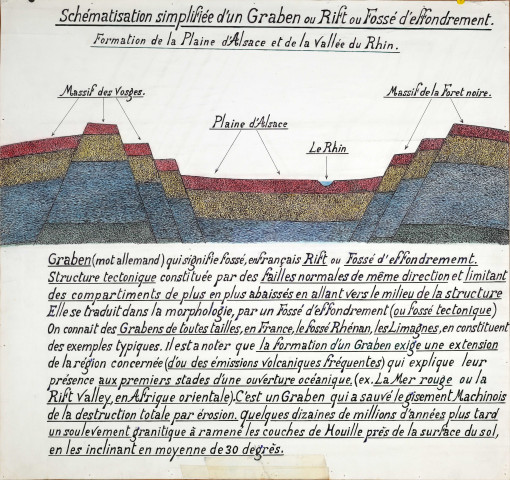 Schématisation simplifiée d'un Graben ou Rift ou Fossé d'effondrement.
Formation de la Plaine d'Alsace et de la Vallée du Rhin.
Massif des Vosges.
Massif de la Foret noire.
Plaine d'Alsace
Le Rhin
Graben (mot allemand) qui signifie fossé, en français Rift ou Fossé d'effondrememt.
Structure tectonique constituée par des failles normales de même direction et limitant
des compartiments de plus en plus abaissés en allant vers le milieu de la structure
Elle se traduit dans la morphologie, par un Fossé d'effondrement (ou fossé tectonique)
On connait des Grabens de toutes tailles, en France, le fossé Rhénan, les Limagnes, en constituent
des exemples typiques. Il est a noter que la formation d'un Graben exige une extension
de la région concernée (d'ou des émissions volcaniques fréquentes) qui explique leur
présence aux premiers stades d'une ouverture océanique, (ex. La Mer rouge ou la
Rift Valley, en Afrique orientale). C'est un Graben qui a sauvé le gisement Machinois
de la destruction totale par érosion. Quelques dizaines de millions d'années plus tard
un soulevement granitique à ramené les couches de Houille prés de la surface du sol,
en les inclinant en moyenne de 30 degrès.